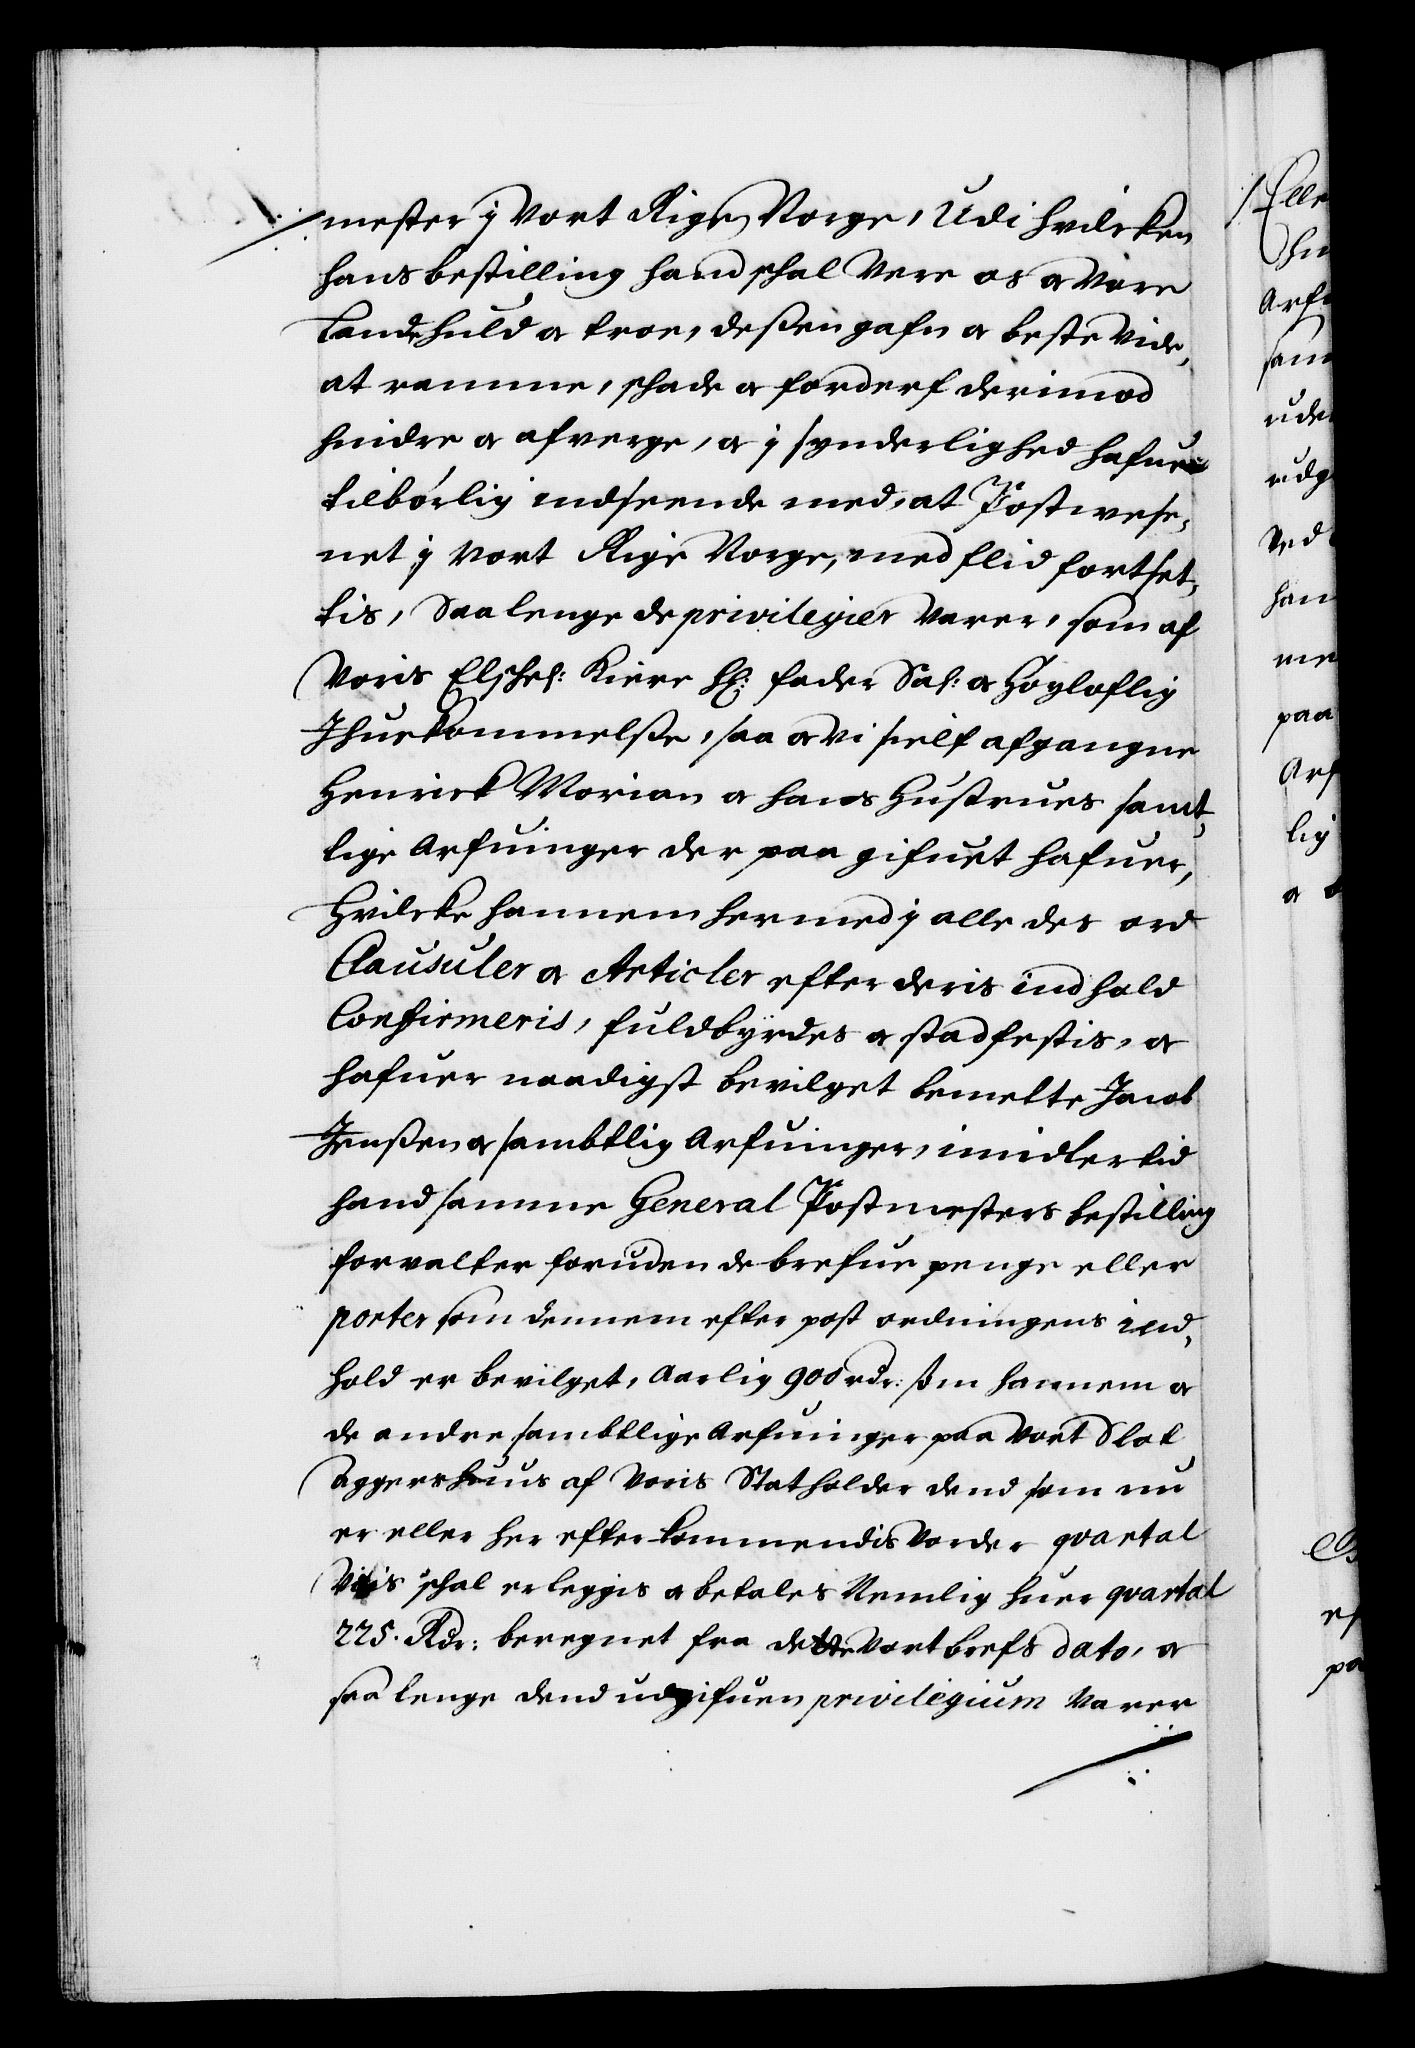 mester j Vort Rige Norge, Udi hvilcken
hans bestilling hand schal Vere os & Vore
Lande huld & troe, deßen gafn & beste Vide,
at ramme, schade & forderf derimod
hindre & afverge, & j synderlighed hafue
tilbørlig indseende med, at Postwese,
net j Vort Rige Norge, med flid fortset,
tis, Saa lenge de privilegier Varer, som af
Voris Elschel: Kiere H: fader Sal: & Høyloflig
Jhuekommelße, saa & Vi sielf afgangne
Henrick Morian & hans Hustrues samt,
lige Arfuinger der paa gifuet hafuer,
Hvilcke hannem hermed j alle des ord
Clausuler & Articler efter deris indhold
Confirmeris, fuldbyrdes & stadfestis, &
hafuer naadigst bevilget bemelte Jacob
Jenßen & sambtlig Arfuinger, imidlertid
hand samme General Postmesters bestilling
forvalter foruden de brefue penge eller
porter som dennem efter post ordningens ind,
hold er bevilget, Aarlig 900 rdr: som hannem &
de andre sambtlige Arfuinger paa Vort Slot
Aggershuus af Voris Statholder dend som nu
er eller her efter kommendis Vorder qvartal
Viis schal erleggis & betales Nemlig huer qvartal
225. Rdr: beregnet fra dette Vort brefs dato, &
saa lenge dend udgifuen privilegium Varer